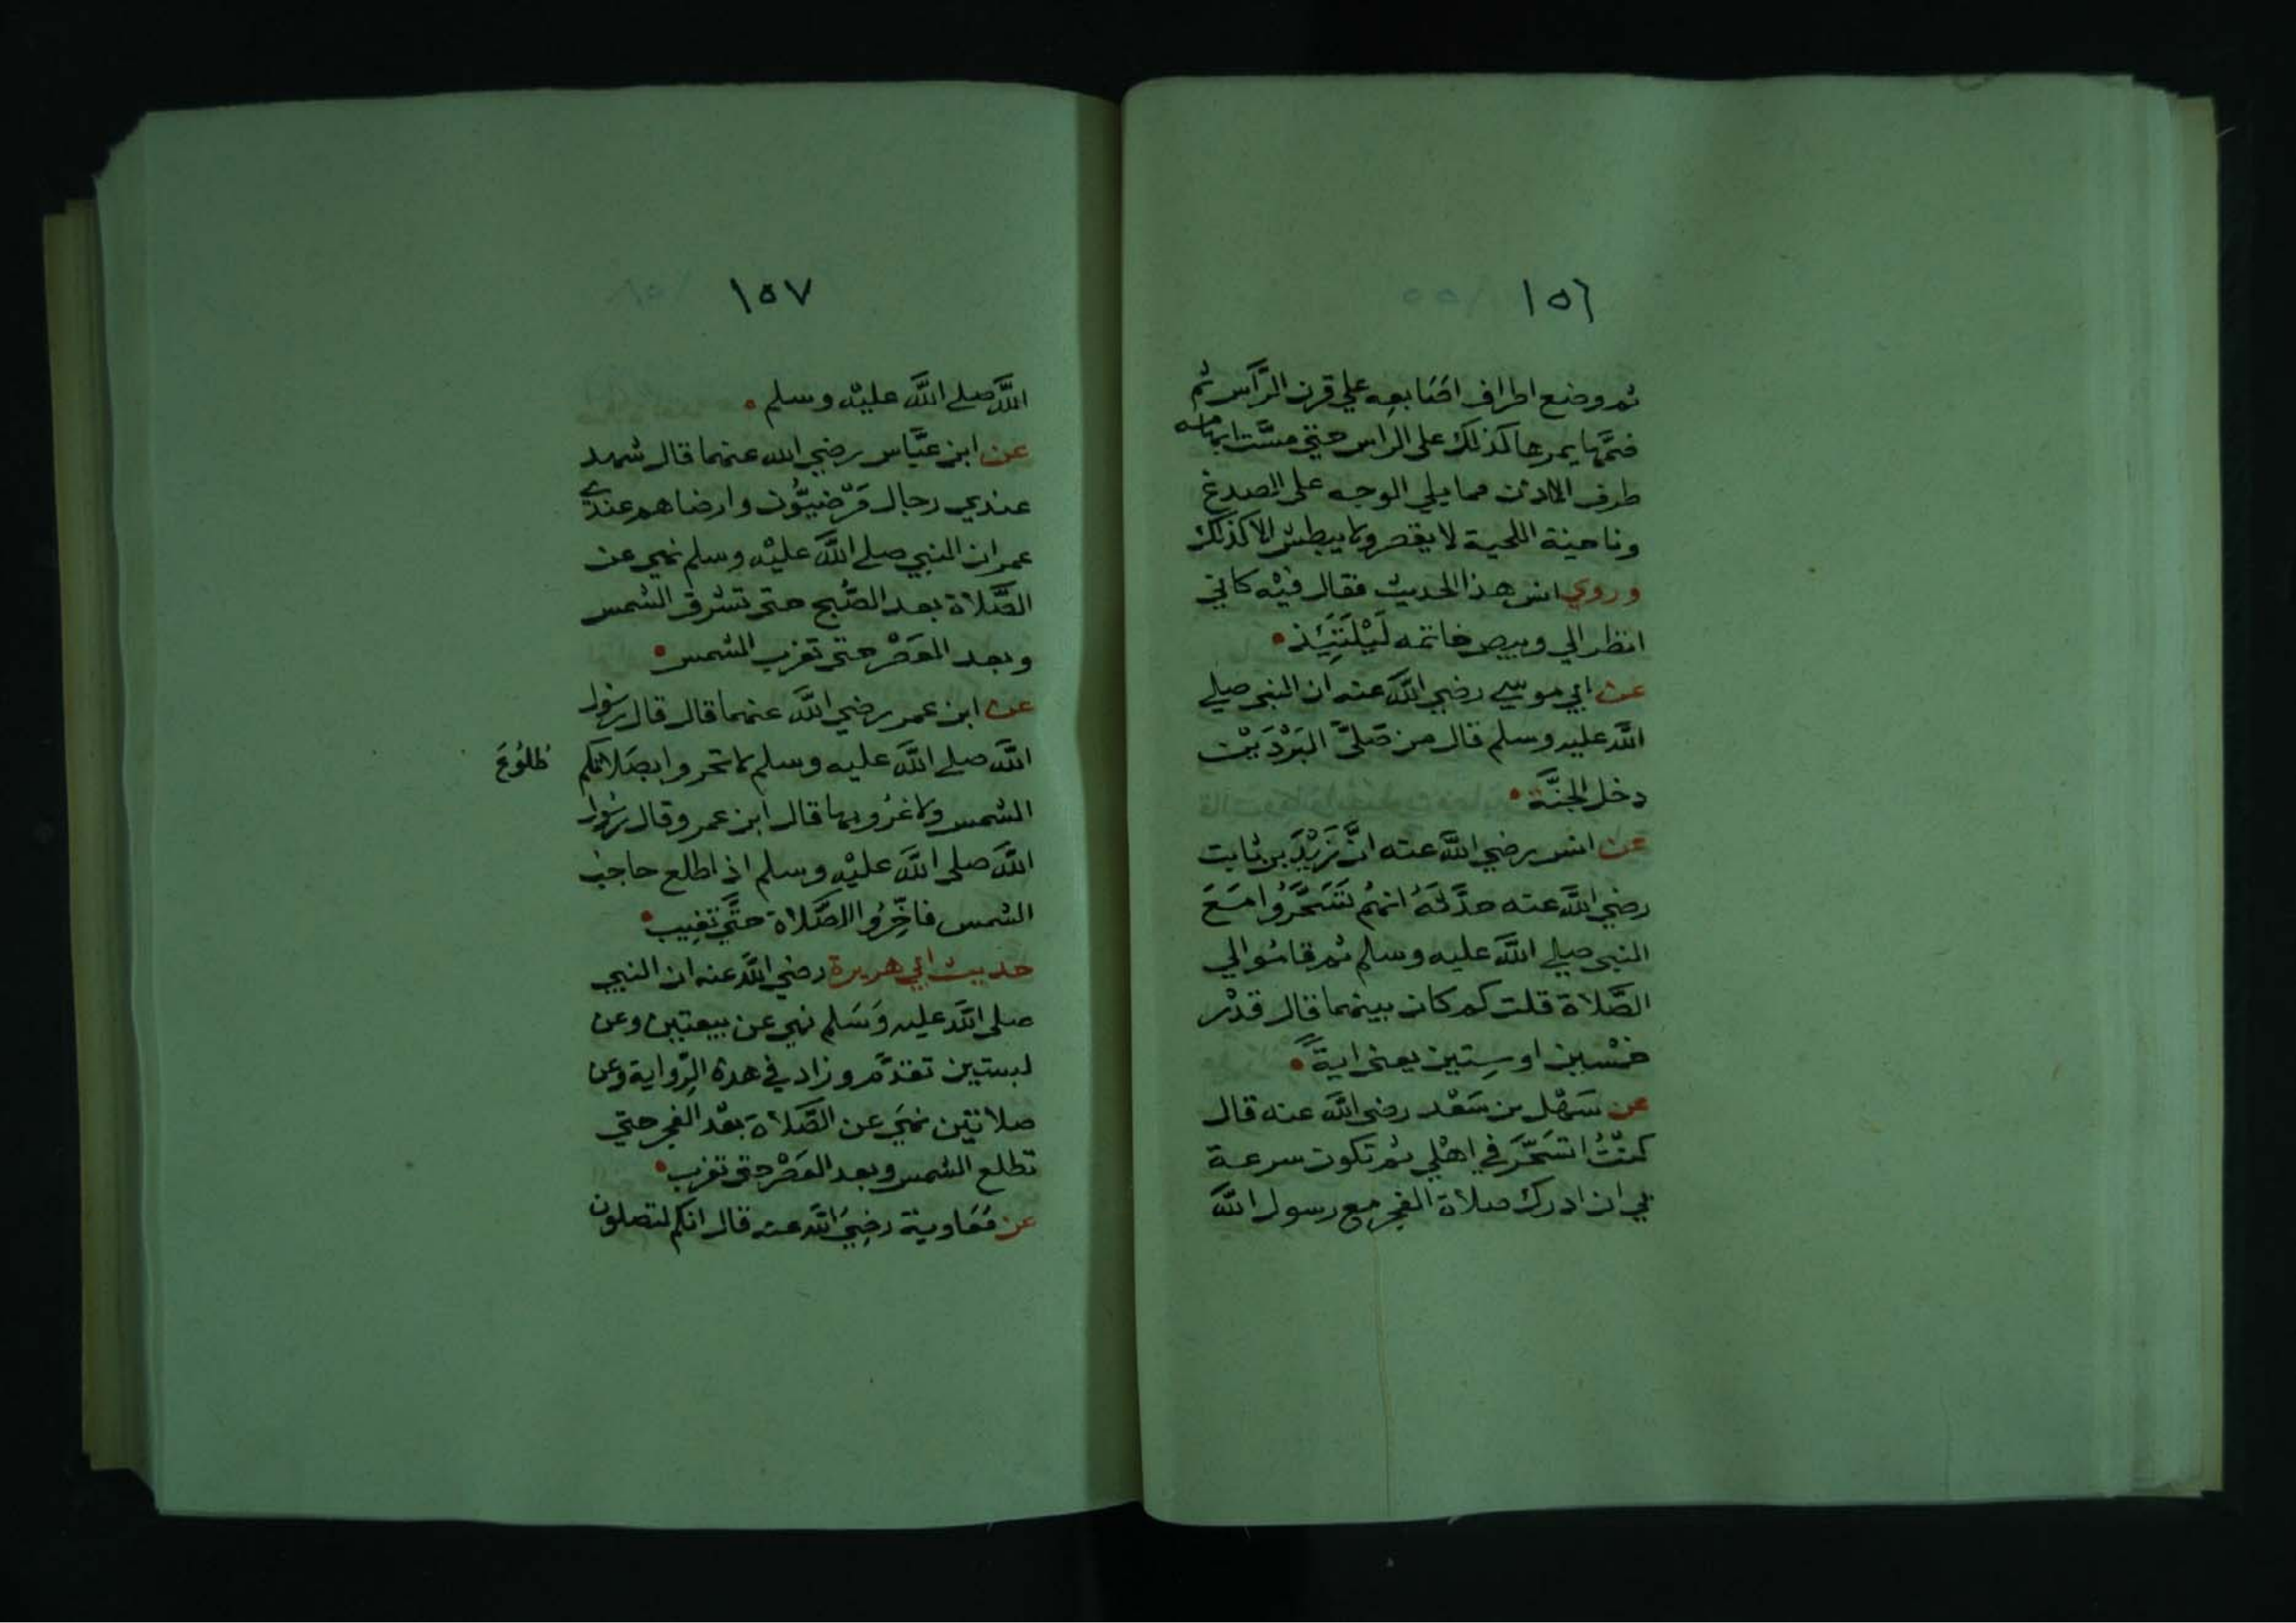 ١٥٦
ثم وضع اطراف اصَابعِه علي قرن الرَّأس ثم
ضمَّها يمرها كذلك على الراس حتي مسَّت ابهامه
طرف الاذن مما يلي الوجه على الصدغ
وناحية اللحية لا يقصر ولا يبطش الا كذلك
وروي انس هذا الحديث فقال فيْه كاني
انظر الي وبيص خاتمه لَيْلَتَئِذ
عن ابي موسي رضي اللَّه عنه ان النبي صلي
اللَّه عليه وسلم قال من صَلىَّ البَرْدَيْن
دخل الجنَّة
عن انس رضي اللَّه عنه انَّ زَيْدَ بن ثابت
رضي اللَّه عنه حدَّثَهُ انهُم تَسَحَّرُوا مَعَ
النبي صلي اللَّه عليه وسلم ثم قامُوا الي
الصَّلاة قلت كم كان بينهما قال قدْر
خمْسين او سِتين يعني ايةً
عن سَهْل بن سَعْد رضي اللَّه عنه قال
كنْتُ اتسَحَّرَ في اهْلي ثم تكون سرعة
بي ان ادرك صلاة الفجر مع رسول اللَّه
١٥٧
اللَّه صلے اللَّه عليْه وسلم
عن ابن عبَّاس رضي الله عنهما قال شهد
عندي رجال مَرْضيُّون وارضاهم عندے
عمر ان النبي صلے اللَّه عليْه وسلم نهي عن
الصَّلاة بعد الصُّبح حتى تشرق الشمس
وبعد العَصْر حتى تغرب الشمس
عن ابن عمر رضي اللَّه عنهما قال قال رسول
اللَّه صلے اللَّه عليه وسلم لا تحروا بصَلاتكم طلُوعَ
الشمس ولا غرُوبها قال ابن عمر وقال رسول
اللَّه صلى اللَّه عليْه وسلم اذ اطلع حاجب
الشمس فاخِّرُوا الصَّلاة حتَّي تغِيب
حديث ابي هريرة رضي اللَّه عنه ان النبي
صلى اللَّه عليه وَسَلم نهي عن بيعتين وعن
لبستين تقدَّم وزاد في هدة الرِّواية وعن
صلاتين نهَي عن الصَّلاة بعْد الفجر حتي
تطلع الشمس وبعد العَصْر حتى تغرب
عن مُعَاوية رضِيَ اللَّه عنه قال انكم لتصلون